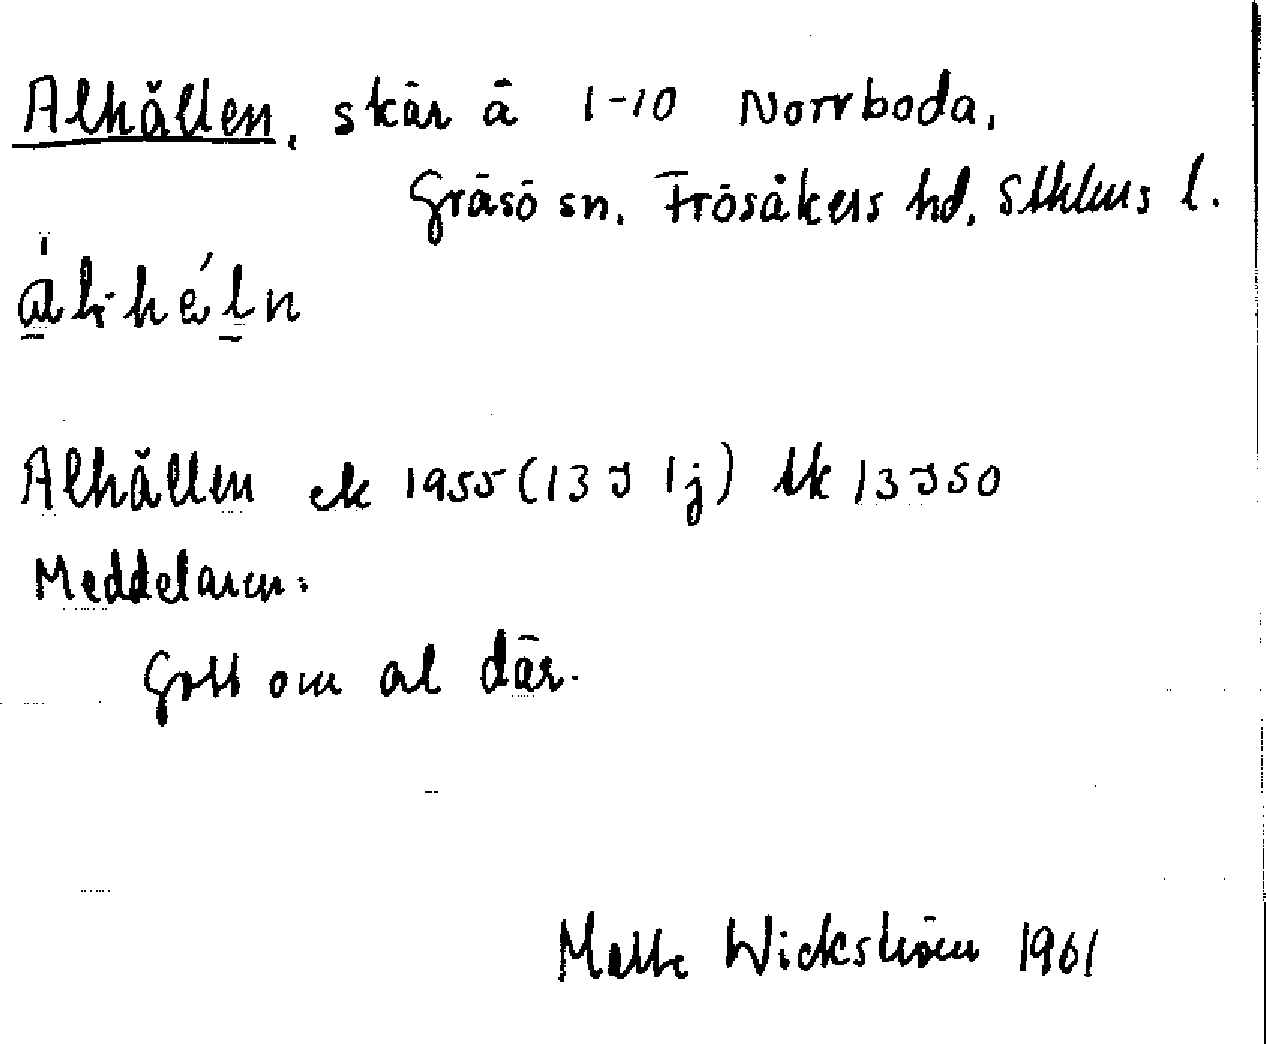 Alhällen, skär å 1-10 Norrboda,
Gräsö sn. Frösåkers hd, Sthlms l.
Alhällen ek 1955 (13 J 1j) tk 13J50
Meddelaren:
Gott om al där.
Wickström 1961